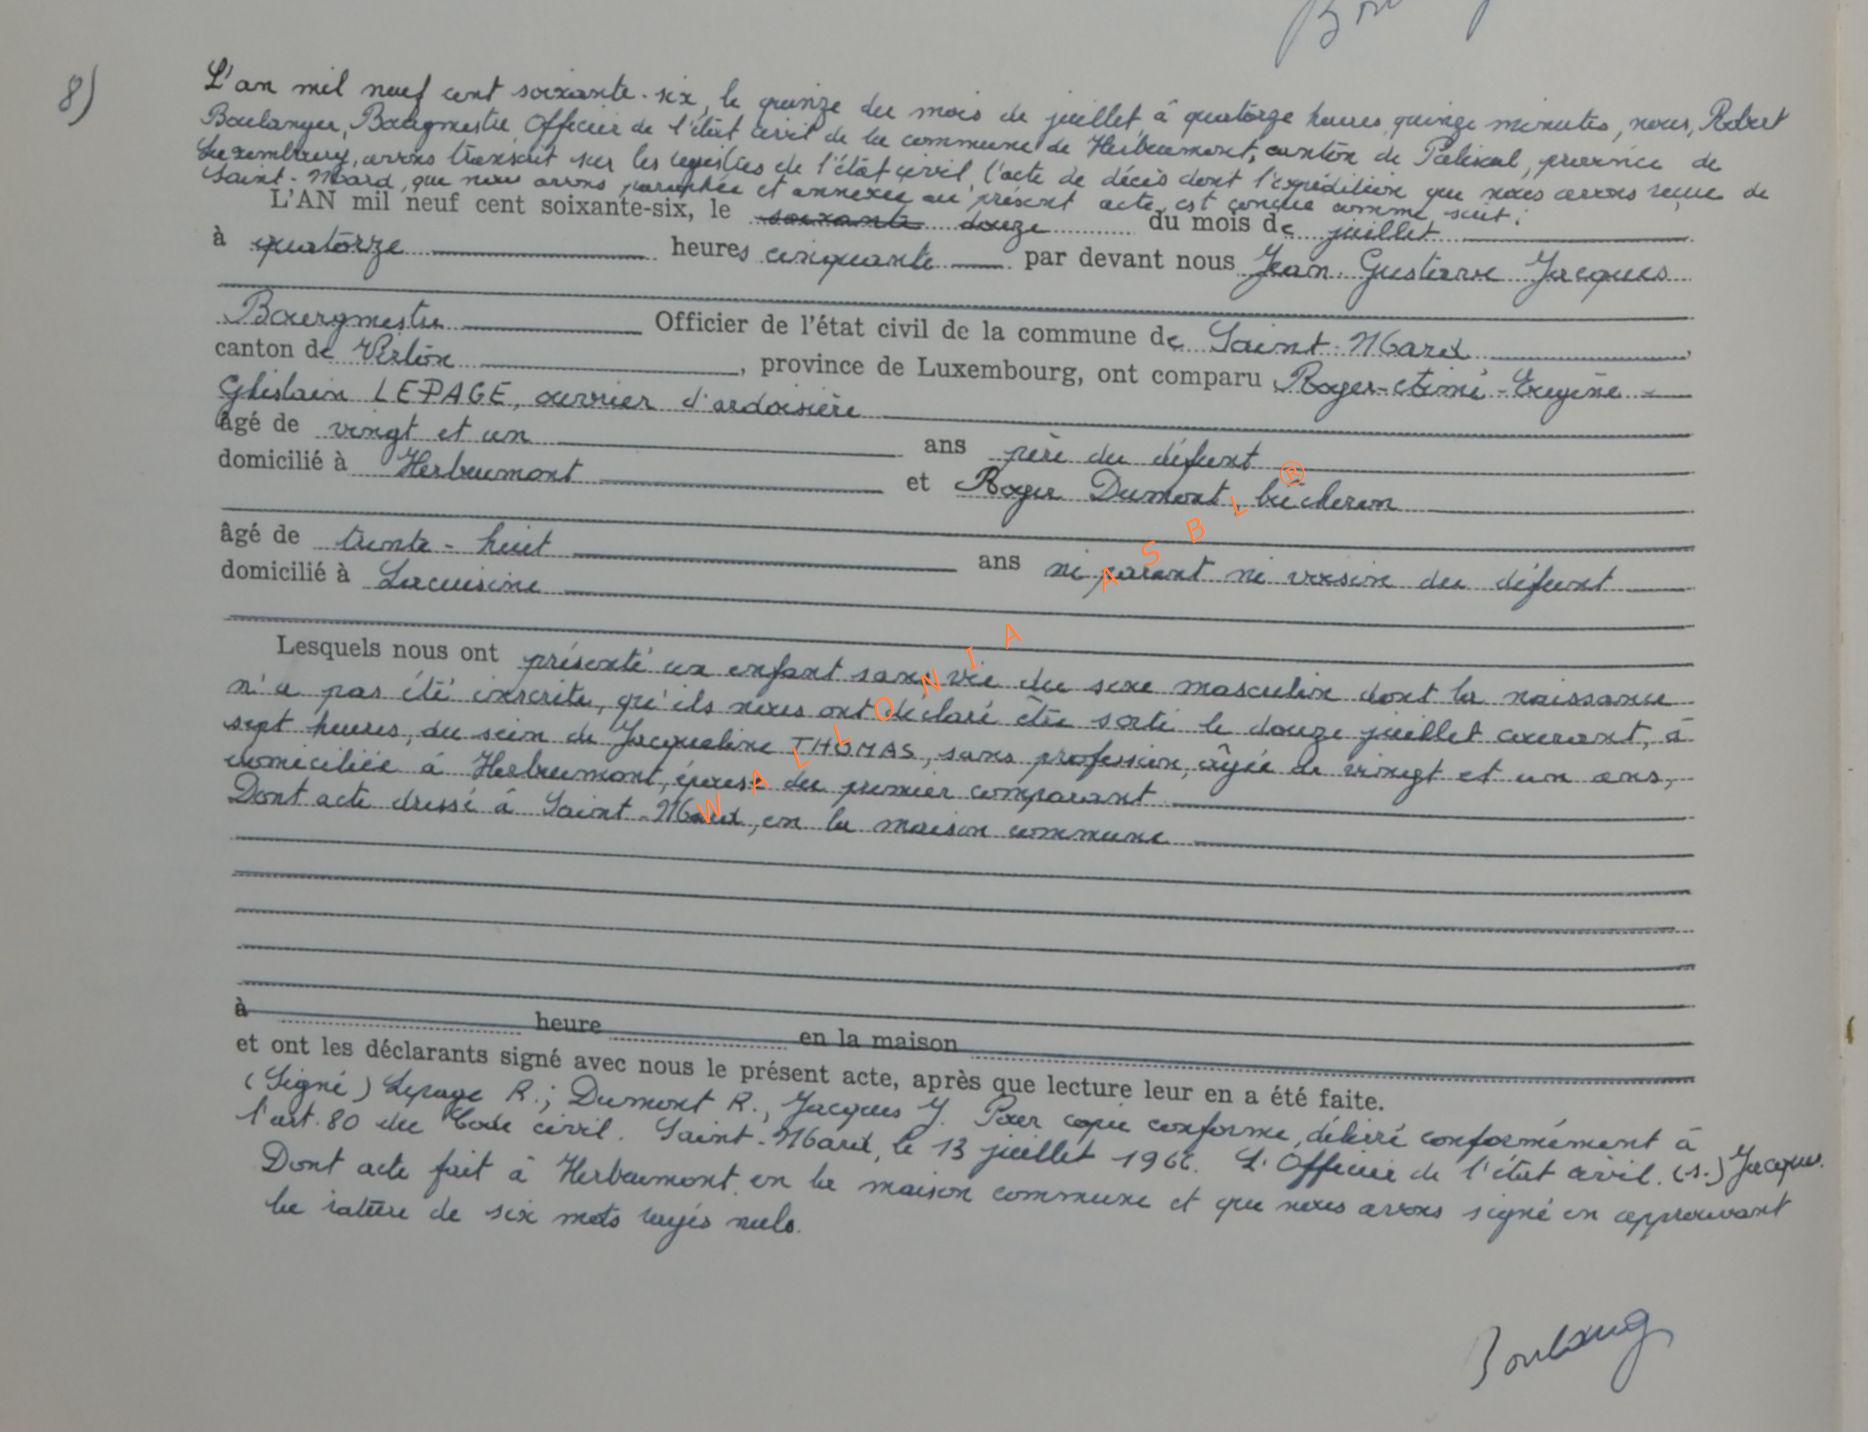 8)
L'an mil neuf cent soixante-six, le quinze du mois de juillet, à quatorze heures quinze minutes, nous, Robert
Boulanger, Bourgmestre Officier de l'état civil de la commune de Herbeumont, canton de Paliseul, province de
Luxembourg, avons transcrit sur les registres de l'état civil, l'acte de décès dont l'expédition que nous avons reçue de
Saint-Mard, que nous avons paraphée et annexée au présent acte, est conçue comme suit :
L'AN mil neuf cent soixante-six, le soixante douze du mois de juillet
à quatorze heures cinquante par devant nous Jean Gustave Jacques
Bourgmestre Officier de l'état civil de la commune de Saint-Mard
canton de Virton, province de Luxembourg, ont comparu Roger-Aimé-Eugène-
Ghislain LEPAGE, ouvrier d'ardoisière
âgé de vingt et un ans père du défunt
domicilié à Herbeumont et Roger Dumont, bûcheron
âgé de trente-huit ans ni parent ni voisin du défunt
domicilié à Lacuisine
Lesquels nous ont présenté un enfant sans vie du sexe masculin dont la naissance
n'a pas été inscrite, qu'ils nous ont déclaré être sorti le douze juillet courant, à
sept heures, du sein de Jacqueline THOMAS, sans profession, âgée de vingt et un ans,
domiciliée à Herbeumont, épouse du premier comparant
Dont acte dressé à Saint-Mard, en la maison commune
à heure en la maison
et ont les déclarants signé avec nous le présent acte, après que lecture leur en a été faite.
(Signé) Lepage R.; Dumont R.; Jacques J. Pour copie conforme, délivré conformément à
l'art. 80 du Code civil. Saint-Mard, le 13 juillet 1966. L'Officier de l'état civil. (s.) Jacques.
Dont acte fait à Herbeumont en la maison commune et que nous avons signé en approuvant
la rature de six mots rayés nuls.
Boulang
WALLONIA ASBL ®